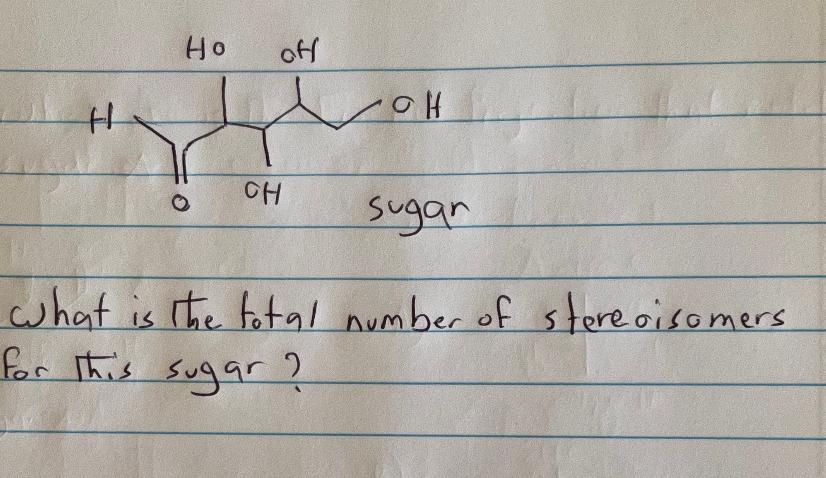 HO OH
H OH
O OH
sugar
What is the total number of stereoisomers
for this sugar?